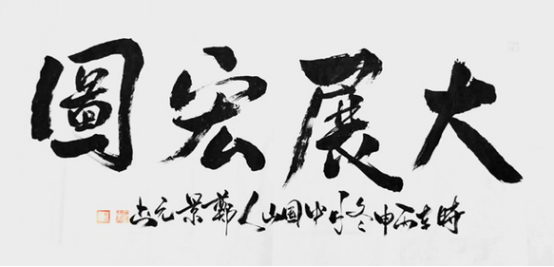 大展宏圖
時在丙申冬月中國山人鄭景元書